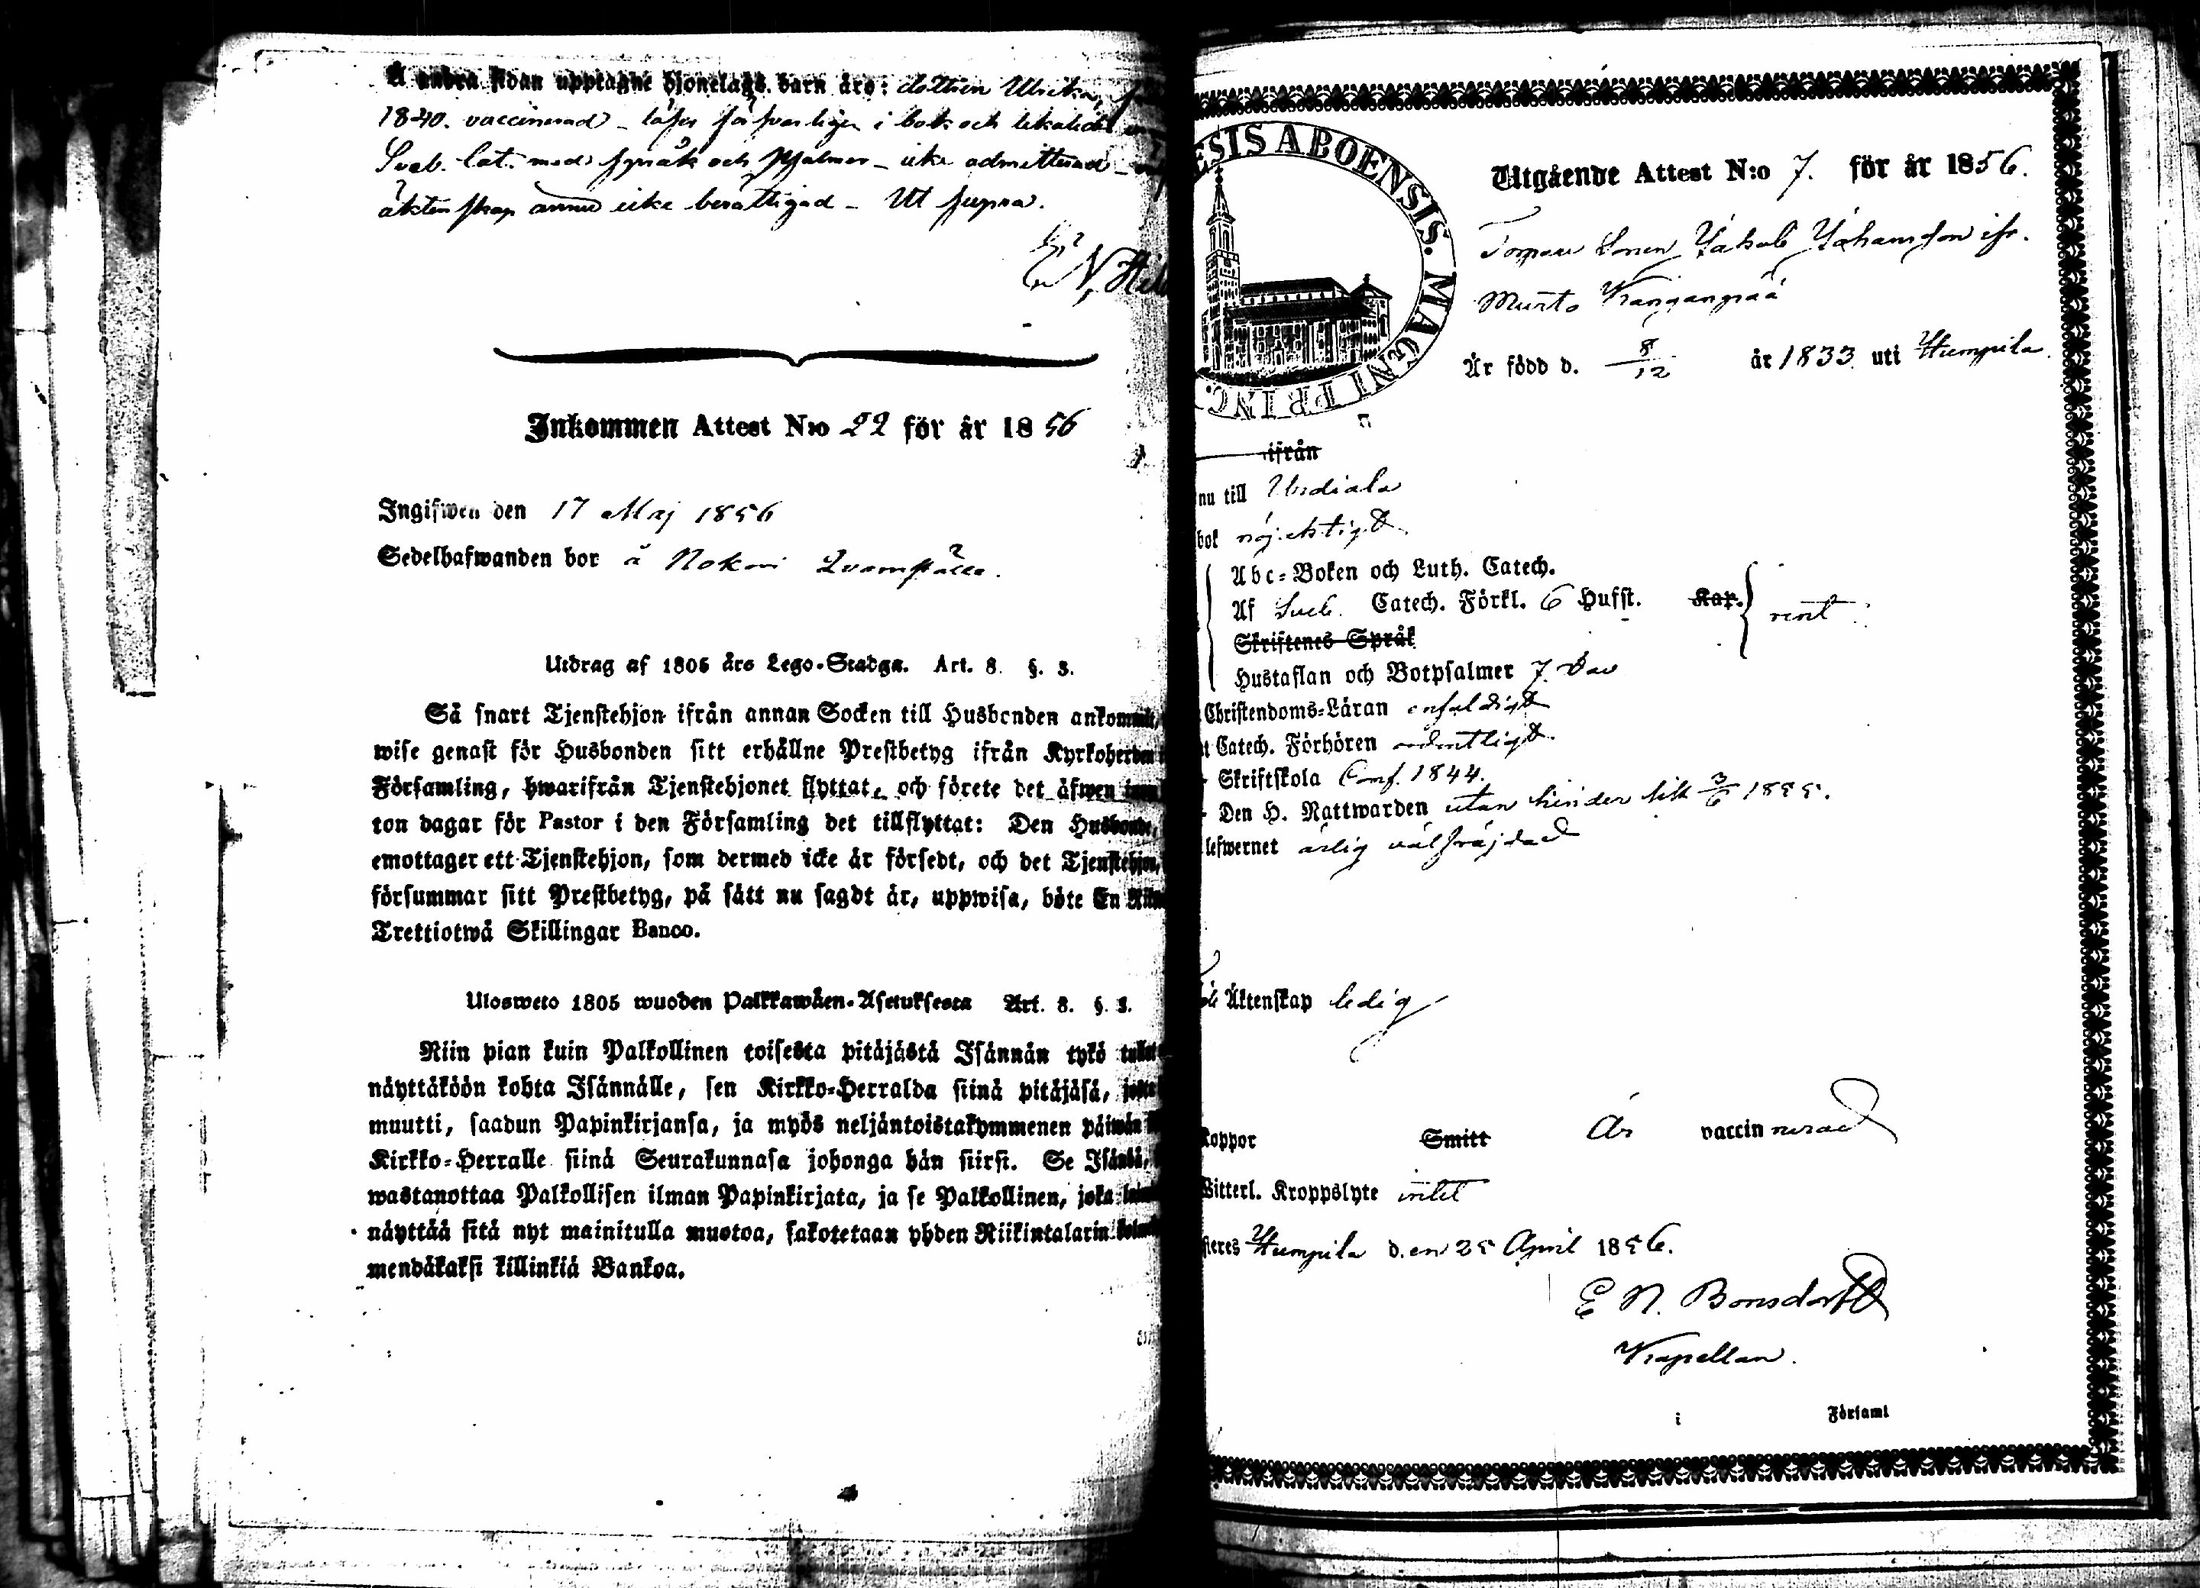 Å andra sidan upptagne hjonelags barn äro: dottren Ulrika,
1840. vaccinerad – läser försvarligen i bok och lekaledes
Sveb. Cat. med språk och psalmer – icke admitterad –
äktenskap ännu icke berättigad – Ut supra.
E. N.
Inkommen Attest N:o 22 för år 1856
Ingifwen den 17 Maj 1856
Sedelhafwanden bor å Nokari
Utdrag af 1805 års Lego-Stadga. Art. 8. §. 3.
Så snart Tjenstehjon ifrån annan Socken till Husbonden ankommit,
wise genast för Husbonden sitt erhållne Prestbetyg ifrån Kyrkoherden i
Församling, hwarifrån Tjenstehjonet flyttat, och förete det äfwen
ton dagar för Pastor i den Församling det tillflyttat: Den Husbonde,
emottager ett Tjenstehjon, som dermed icke är försedt, och det Tjenstehjon,
försummar sitt Prestbetyg, på sätt nu sagdt är, uppwisa, böte En
Trettiotwå Skillingar Banco.
Ulosweto 1805 wuoden Palkkawäen-Asetuksesta Art. 8. §. 3.
Niin pian kuin Palkollinen toisesta pitäjästä Isännän tykö tullut
näyttäköön kohta Isännälle, sen Kirkko-Herralda siinä pitäjäsä, josta
muutti, saadun Papinkirjansa, ja myös neljäntoistakymmenen päiwän
Kirkko-Herralle siinä Seurakunnasa johonga hän siirsi. Se Isändä,
wastanottaa Palkollisen ilman Papinkirjata, ja se Palkollinen, joka
näyttää sitä nyt mainitulla muotoa, sakotetaan yhden Riikintalarin
mendäkaksi killinkiä Bankoa.
ESIS ABOENSIS. MAGNI PRINC.
Utgående Attest N:o 7. för år 1856.
Torpare Sonen Jakob Johansson ifr.
Murto Kanganpää
Är född d. 8/12 år 1833 uti Humpila
ifrån
nu till Urdiala
bok nöjaktigt
Abc-Boken och Luth. Catech.
Af Sveb. Catech. Förkl. 6 Hufst. Kap. rent
Skriftenes Språk
Hustaflan och Botpsalmer 7. Dav
Christendoms-Läran enfaldigt
Catech. Förhören ordentligt
Skriftskola Conf. 1844.
Den H. Nattwarden utan hinder sist 3/6 1855.
lefwernet ärlig välfräjdad
Äktenskap ledig
koppor Smitt Är vaccinnerad
Witterl. Kroppslyte intet
Humpila den 25 April 1856.
E N. Bonsdorff
Kapellan.
i Församl